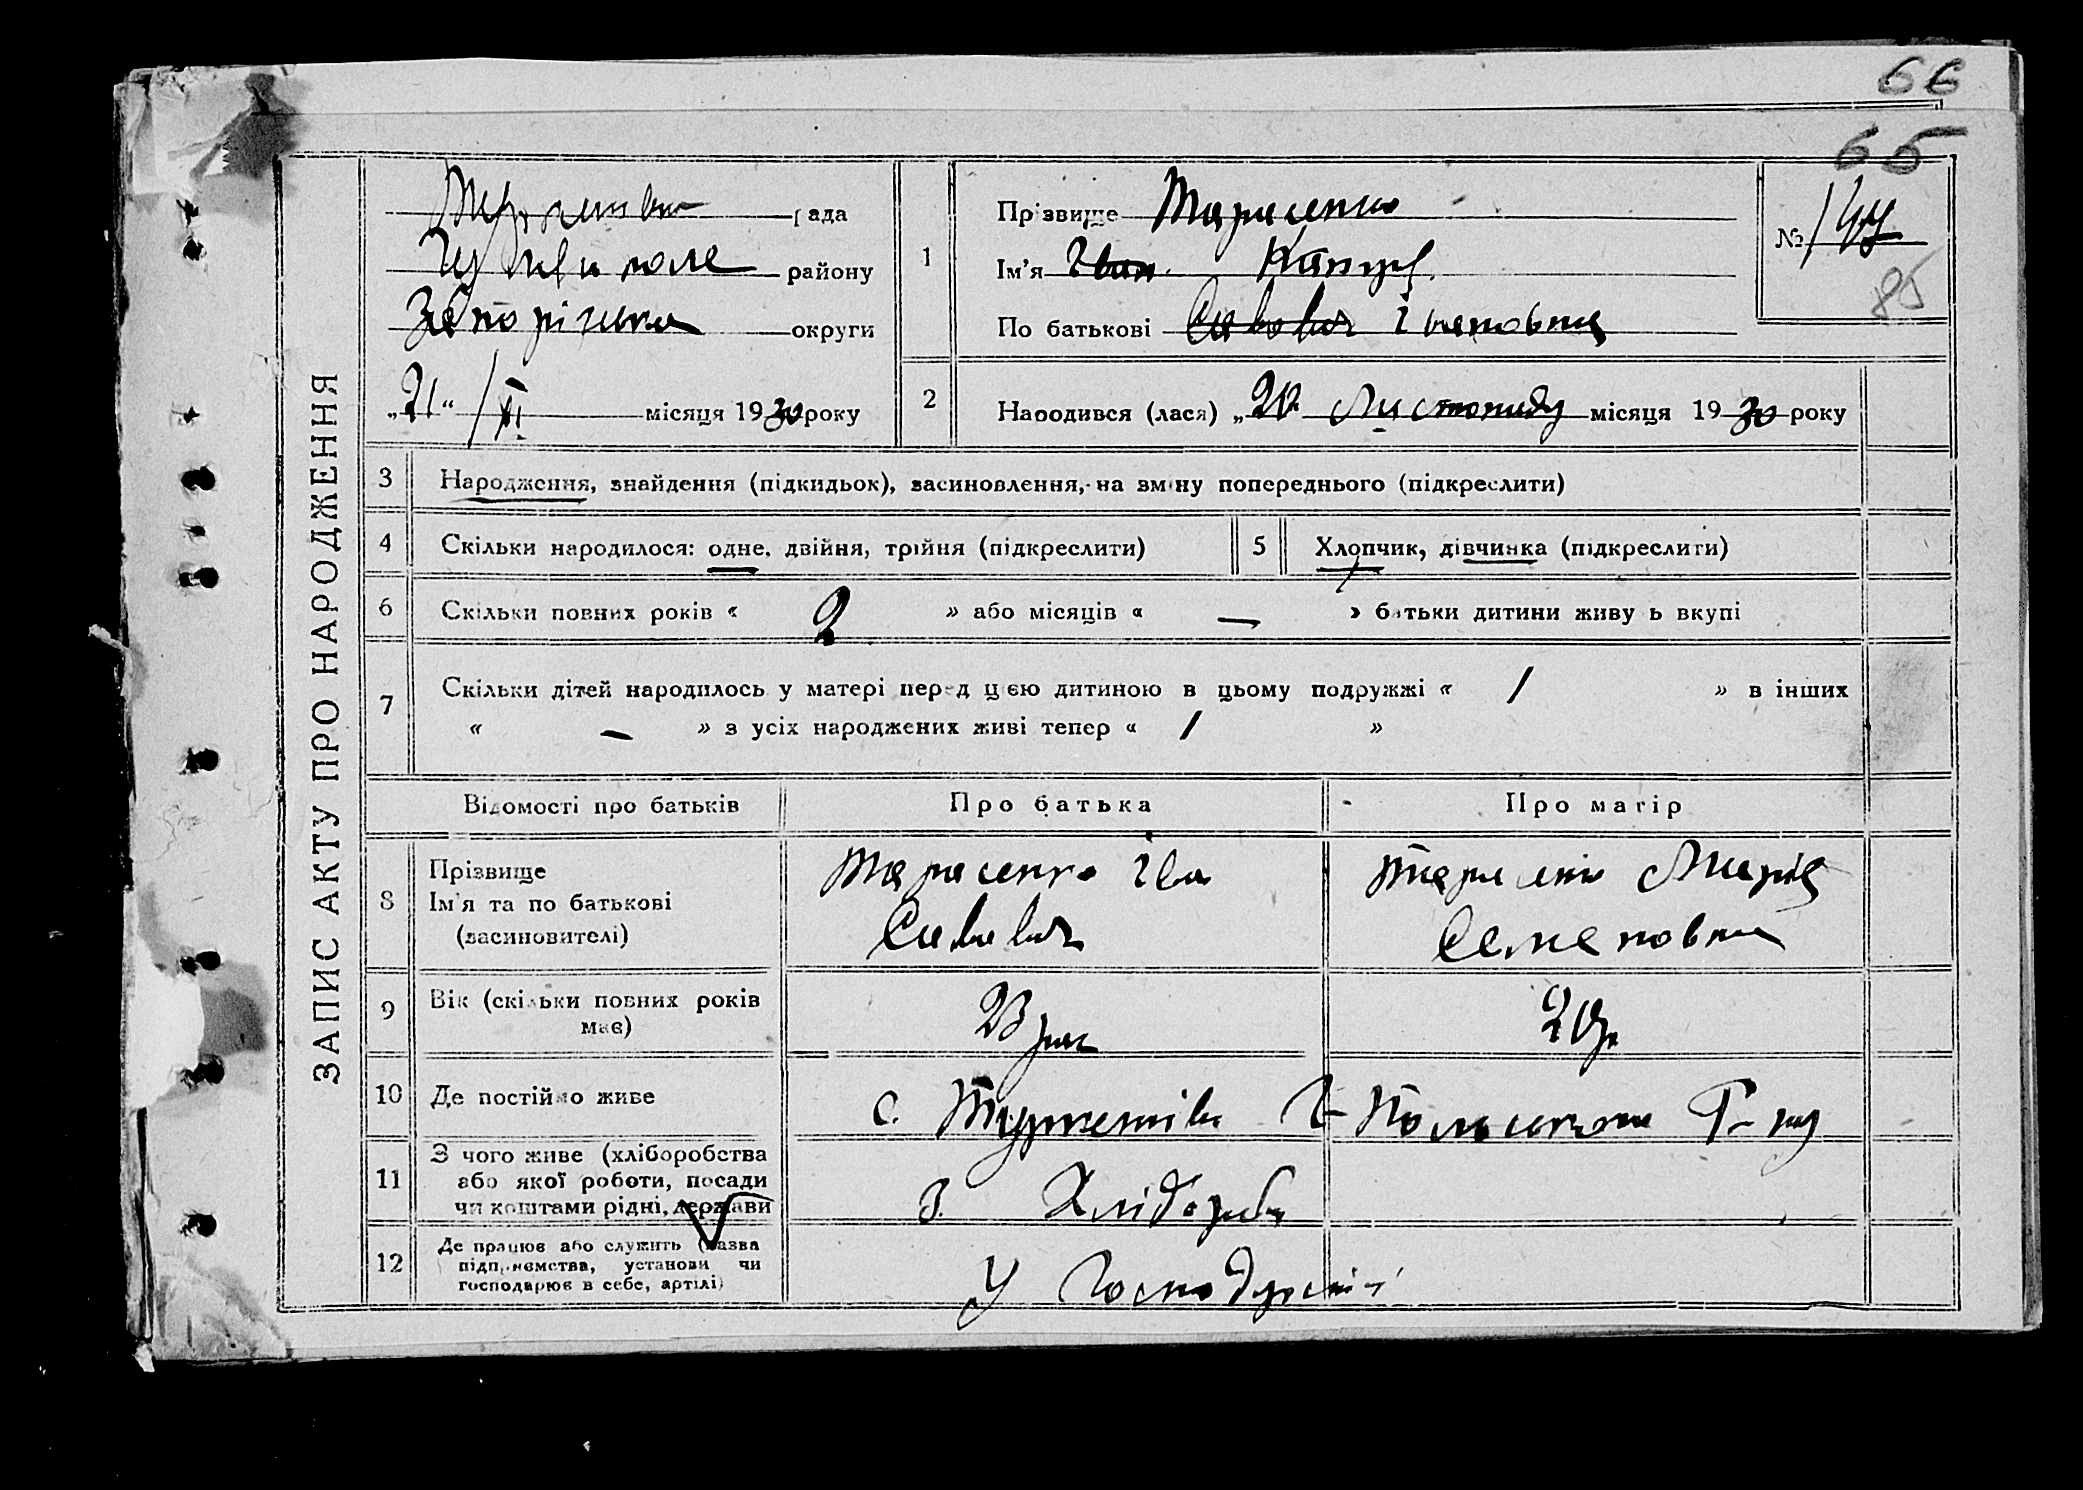 66
65
ЗАПИС АКТУ ПРО НАРОДЖЕННЯ
рада
Гуляй поле району
Запорізька округи
„21“ /XI місяця 1930 року
1
Прізвище Тарасенко
Ім'я Іван
По батькові Савович Івановна
№ 147
85
2
Народився (лася) „20 Листопаду місяця 1930 року
3 Народження, знайдення (підкидьок), засиновлення, на зміну попереднього (підкреслити)
4 Скільки народилося: одне, двійня, трійня (підкреслити)
5 Хлопчик, дівчинка (підкреслити)
6 Скільки повних років « 2 » або місяців « — » батьки дитини живуть вкупі
7 Скільки дітей народилось у матері перед цією дитиною в цьому подружжі « 1 » в інших
« — » з усіх народжених живі тепер « 1 »
Відомості про батьків Про батька Про матір
8 Прізвище
Ім'я та по батькові
(засиновителі)
Тарасенко Іван
Савович
Тарасенко Марія
Семеновна
9 Вік (скільки повних років
має)
23 рок
20 р
10 Де постійно живе
с. Туркенівка Г-Польського Р-ну
11 З чого живе (хліборобства
або якої роботи, посади
чи коштами рідні, держави
З. Хлібороб
12 Де працює або служить (назва
підприємства, установи чи
господарює в себе, артілі)
У господарстві